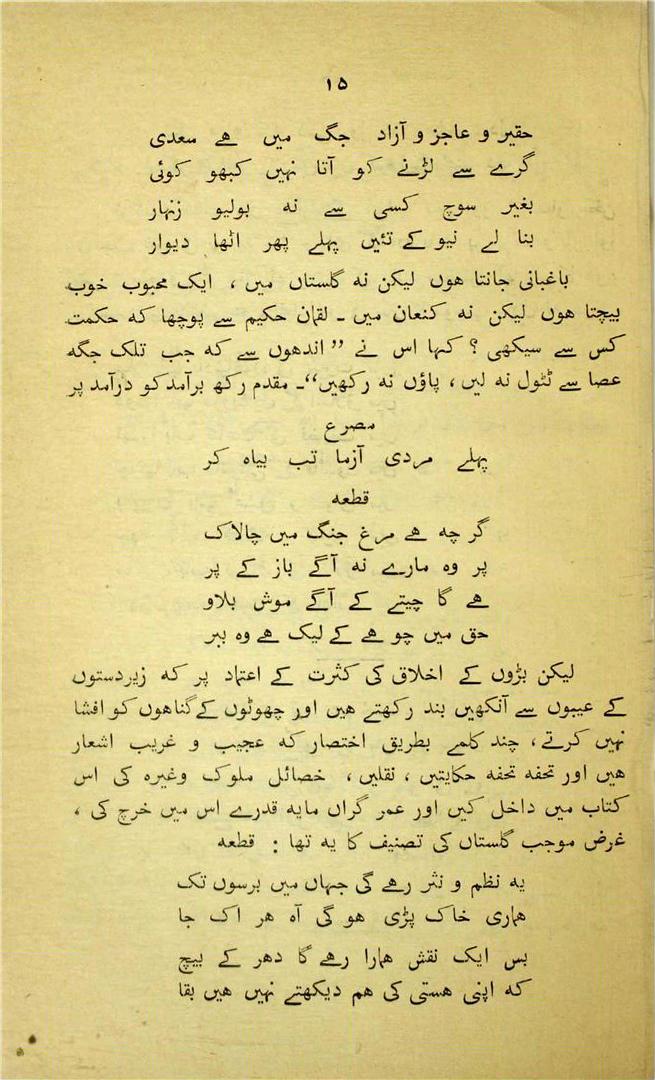 ۱۵
حقیر و عاجز و آزاد جگ میں ہے سعدی
گرے سے لڑنے کو آتا نہیں کبھو کوئی
بغیر سوچ کسی سے نہ بولیو زنہار
بنا لے نیو کے تئیں پہلے پھر اٹھا دیوار
باغبانی جانتا ہوں لیکن نہ گلستاں میں ، ایک محبوب خوب
بیچتا ہوں لیکن نہ کنعان میں ۔ لقمان حکیم سے پوچھا کہ حکمت
کس سے سیکھی ؟ کہا اس نے ” اندھوں سے کہ جب تلک جگہ
عصا سے ٹٹول نہ لیں ، پاؤں نہ رکھیں“۔ مقدم رکھ برآمد کو درآمد پر
مصرع
پہلے مردی آزما تب بیاہ کر
قطعہ
گرچہ ہے مرغ جنگ میں چالاک
پر وہ مارے نہ آگے باز کے پر
ہے گا چیتے کے آگے موش بلاو
حق میں چوہے کے لیک ہے وہ ببر
لیکن بڑوں کے اخلاق کی کثرت کے اعتماد پر کہ زیردستوں
کے عیبوں سے آنکھیں بند رکھتے ہیں اور چھوٹوں کے گناہوں کو افشا
نہیں کرتے ، چند کلمے بطریق اختصار کہ عجیب و غریب اشعار
ہیں اور تحفہ تحفہ حکایتیں ، نقلیں ، خصائل ملوک وغیرہ کی اس
کتاب میں داخل کیں اور عمر گراں مایہ قدرے اس میں خرچ کی ،
غرض موجب گلستاں کی تصنیف کا یہ تھا : قطعہ
یہ نظم و نثر رہے گی جہاں میں برسوں تک
ہماری خاک پڑی ہو گی آہ ہر اک جا
بس ایک نقش ہمارا رہے گا دہر کے بیچ
کہ اپنی ہستی کی ہم دیکھتے نہیں ہیں بقا